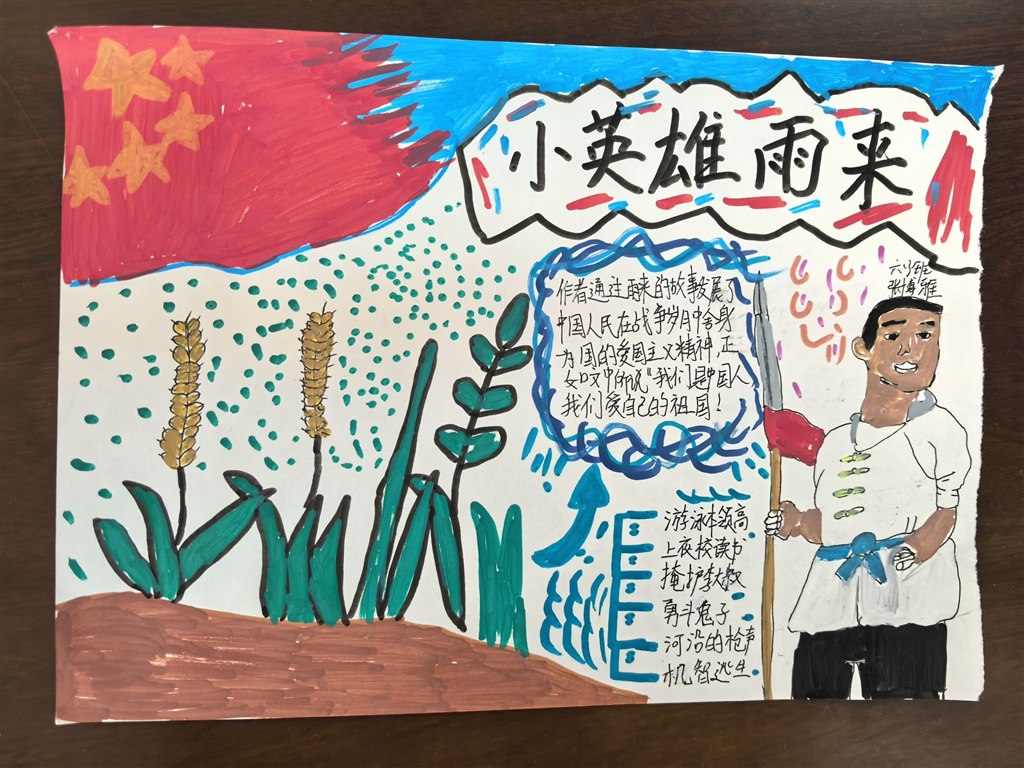 小英雄雨来
六(1)班
张博雅
作者通过雨来的故事发展了
中国人民在战争岁月中舍身
为国的爱国主义精神,正
如文中所说"我们是中国人
我们爱自己的祖国!
游泳本领高
上夜校读书
掩护李大叔
勇斗鬼子
河沿的枪声
机智逃生